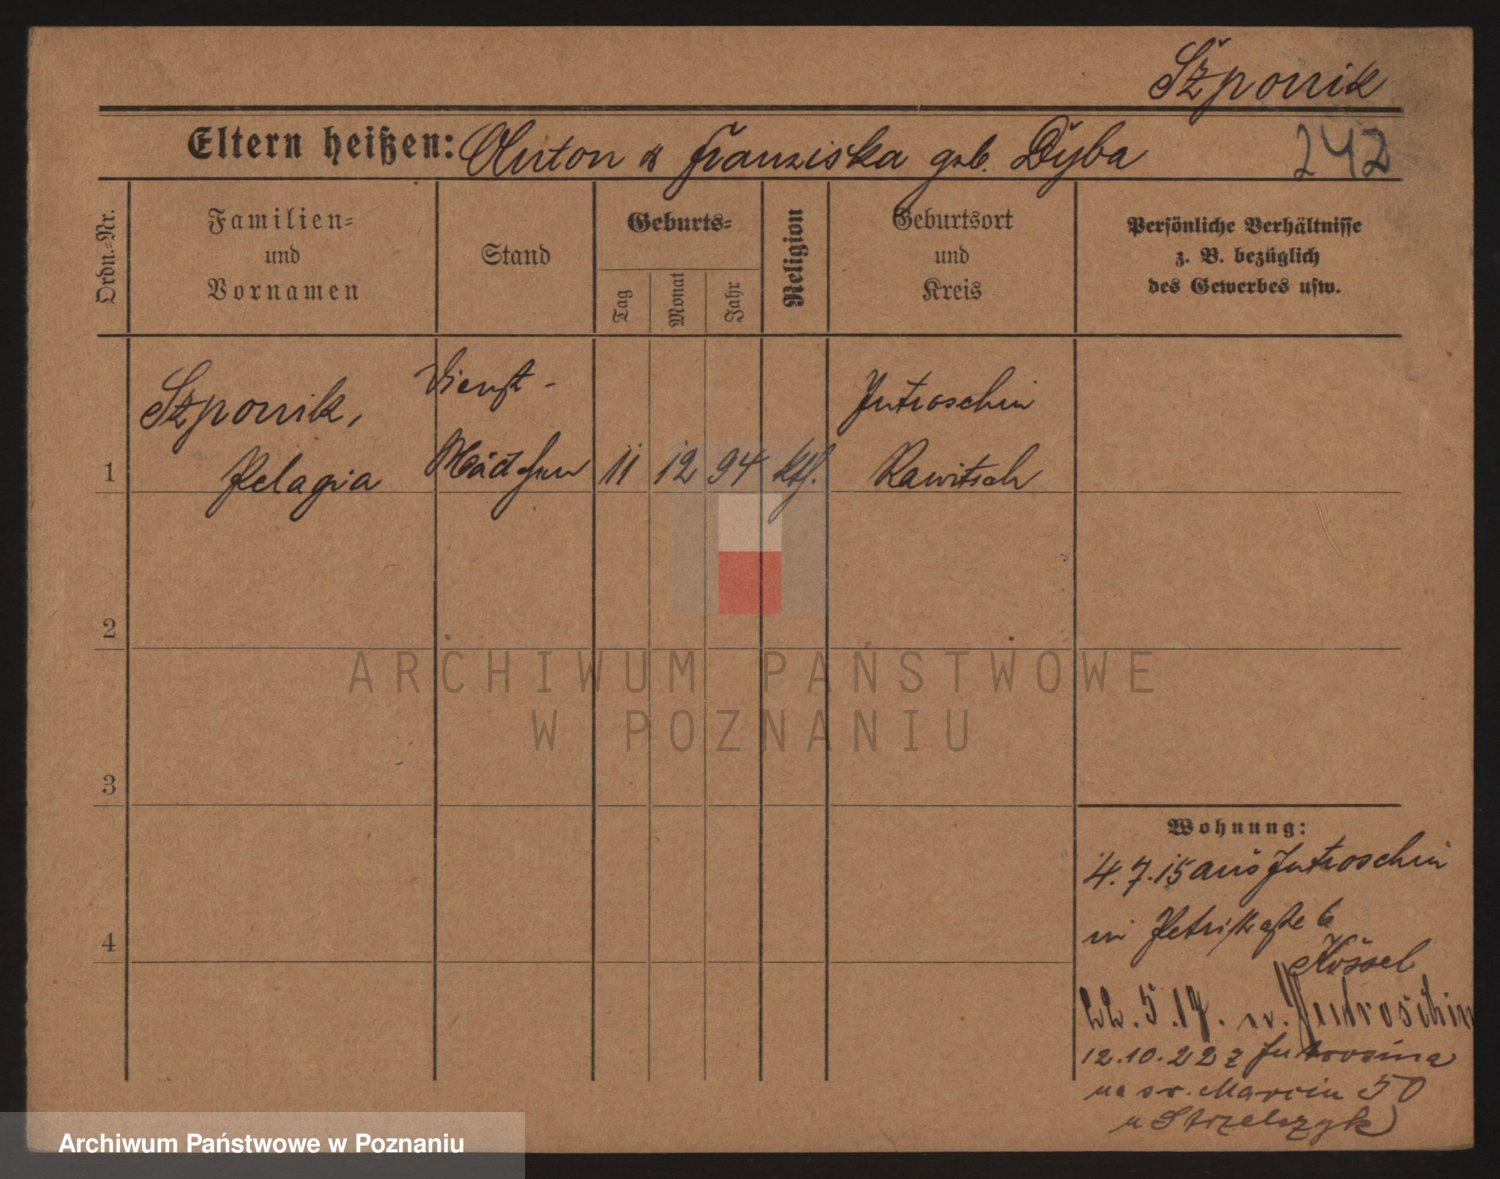 Szponik
Eltern heißen: Anton & Franziska geb. Dyba
242
Ordn.=Nr.
Familien=
und
Vornamen
Stand
Geburts=
Tag
Monat
Jahr
Religion
Geburtsort
und
Kreis
Persönliche Verhältnisse
z. B. bezüglich
des Gewerbes usw.
1
Szponik,
Pelagia
Dienst-
Mädchen
11 12 94 kth.
Jutroschin
Rawitsch
2
3
4
Wohnung:
4.7.15 aus Jutroschin
in Petristraße 6
22.5.17. n. Jutroschin
12.10.22 z Jutrosina
na sw. Marcin 50
u Strzelczyk
ARCHIWUM PAŃSTWOWE
W POZNANIU
Archiwum Państwowe w Poznaniu